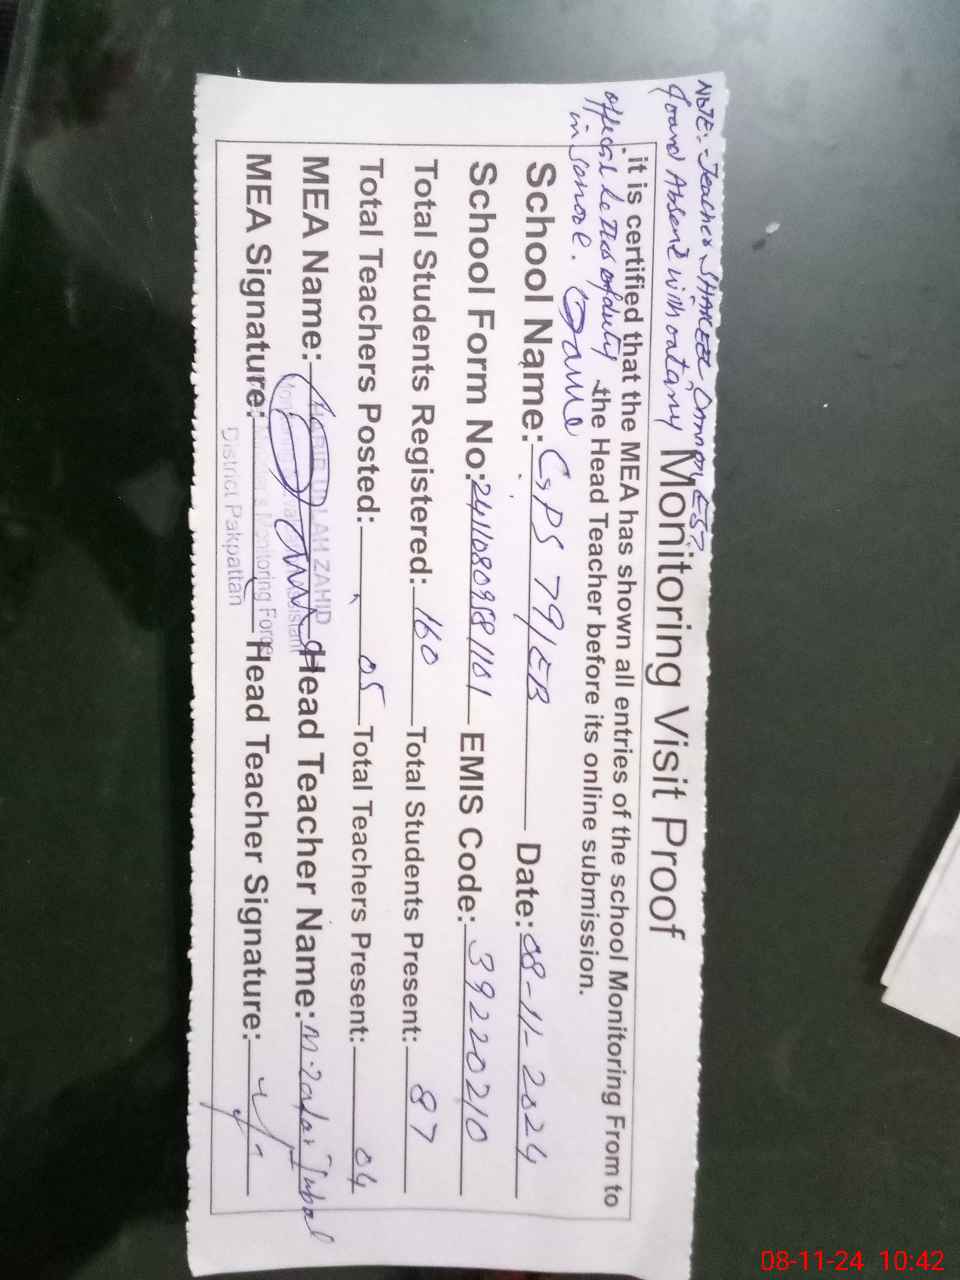 NOTE:- Teacher SHAKEEL Ahmad EST
found Absent without any
official letter of duty
in school.
Monitoring Visit Proof
it is certified that the MEA has shown all entries of the school Monitoring From to
the Head Teacher before its online submission.
School Name: GPS 79/EB Date: 08-11-2024
School Form No: EMIS Code: 39220210
Total Students Registered: 160 Total Students Present: 87
Total Teachers Posted: 05 Total Teachers Present: 04
MEA Name: Head Teacher Name: Iqbal
ZAHID
MEA Signature: Head Teacher Signature:
Monitoring Force
District Pakpattan
08-11-24 10:42